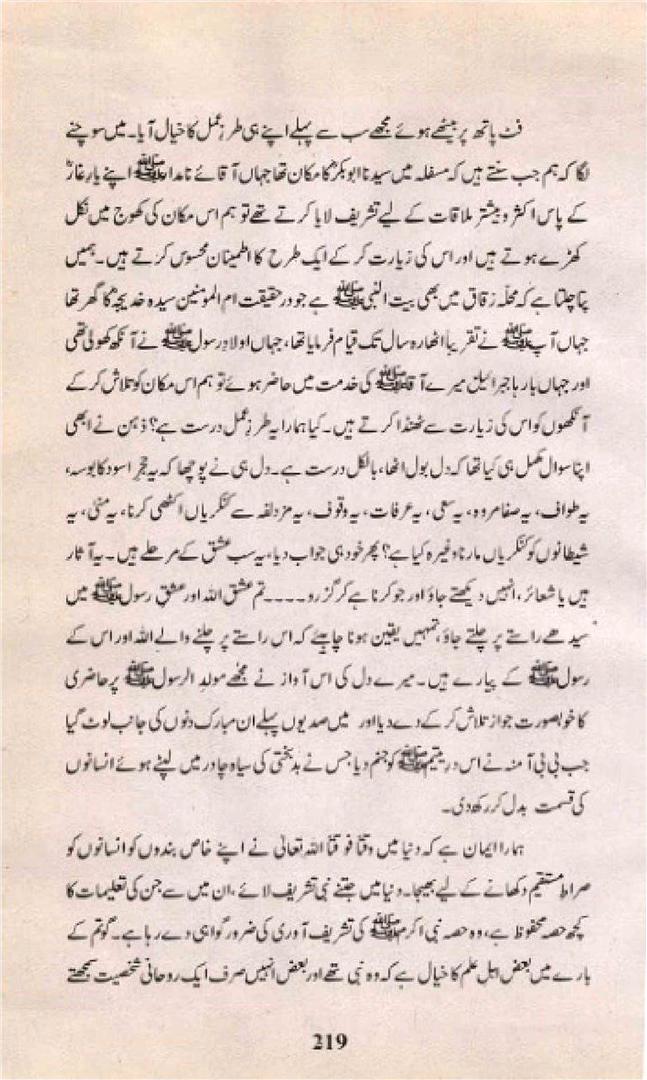 فٹ پاتھ پر بیٹھے ہوئے مجھے سب سے پہلے اپنے ہی طرزِ عمل کا خیال آیا۔ میں سوچنے
لگا کہ ہم جب سنتے ہیں کہ مسفلہ میں سیدنا ابوبکرؓ کا مکان تھا جہاں آقائے نامدار ﷺ اپنے یارِ غارؓ
کے پاس اکثر و بیشتر ملاقات کے لیے تشریف لایا کرتے تھے تو ہم اس مکان کی کھوج میں نکل
کھڑے ہوتے ہیں اور اس کی زیارت کر کے ایک طرح کا اطمینان محسوس کرتے ہیں۔ ہمیں
پتا چلتا ہے کہ محلّہ زقاق میں بھی بیت النبی ﷺ ہے جو درحقیقت ام المومنین سیدہ خدیجہؓ کا گھر تھا
جہاں آپ ﷺ نے تقریباً اٹھارہ سال تک قیام فرمایا تھا، جہاں اولادِ رسول ﷺ نے آنکھ کھولی تھی
اور جہاں بارہا جبرائیلؑ میرے آقا ﷺ کی خدمت میں حاضر ہوئے تو ہم اس مکان کو تلاش کر کے
آنکھوں کو اس کی زیارت سے ٹھنڈا کرتے ہیں۔ کیا ہمارا یہ طرزِ عمل درست ہے؟ ذہن نے ابھی
اپنا سوال مکمل ہی کیا تھا کہ دل بول اٹھا، بالکل درست ہے۔ دل ہی نے پوچھا کہ یہ حجرِ اسود کا بوسہ،
یہ طواف، یہ صفا مروہ، یہ سعی، یہ عرفات، یہ وقوف، یہ مزدلفہ سے کنکریاں اکٹھی کرنا، یہ منیٰ، یہ
شیطانوں کو کنکریاں مارنا وغیرہ کیا ہے؟ پھر خود ہی جواب دیا، یہ سب عشق کے مرحلے ہیں۔ یہ آثار
ہیں یا شعائر، انہیں دیکھتے جاؤ اور جو کرنا ہے کر گزرو۔۔۔۔ تم عشق اللہ اور عشقِ رسول ﷺ میں
سیدھے راستے پر چلتے جاؤ، تمہیں یقین ہونا چاہیئے کہ اس راستے پر چلنے والے اللہ اور اس کے
رسول ﷺ کے پیارے ہیں۔ میرے دل کی اس آواز نے مجھے مولد الرسول ﷺ پر حاضری
کا خوبصورت جواز تلاش کر کے دے دیا اور میں صدیوں پہلے ان مبارک دنوں کی جانب لوٹ گیا
جب بی بی آمنہ نے اس درِ یتیم ﷺ کو جنم دیا جس نے بدبختی کی سیاہ چادر میں لپٹے ہوئے انسانوں
کی قسمت بدل کر رکھ دی۔
ہمارا ایمان ہے کہ دنیا میں وقتاً فوقتاً اللہ تعالیٰ نے اپنے خاص بندوں کو انسانوں کو
صراطِ مستقیم دکھانے کے لیے بھیجا۔ دنیا میں جتنے نبی تشریف لائے، ان میں سے جن کی تعلیمات کا
کچھ حصہ محفوظ ہے، وہ حصہ نبی اکرم ﷺ کی تشریف آوری کی ضرور گواہی دے رہا ہے۔ گوتم کے
بارے میں بعض اہل علم کا خیال ہے کہ وہ نبی تھے اور بعض انہیں صرف ایک روحانی شخصیت سمجھتے
219